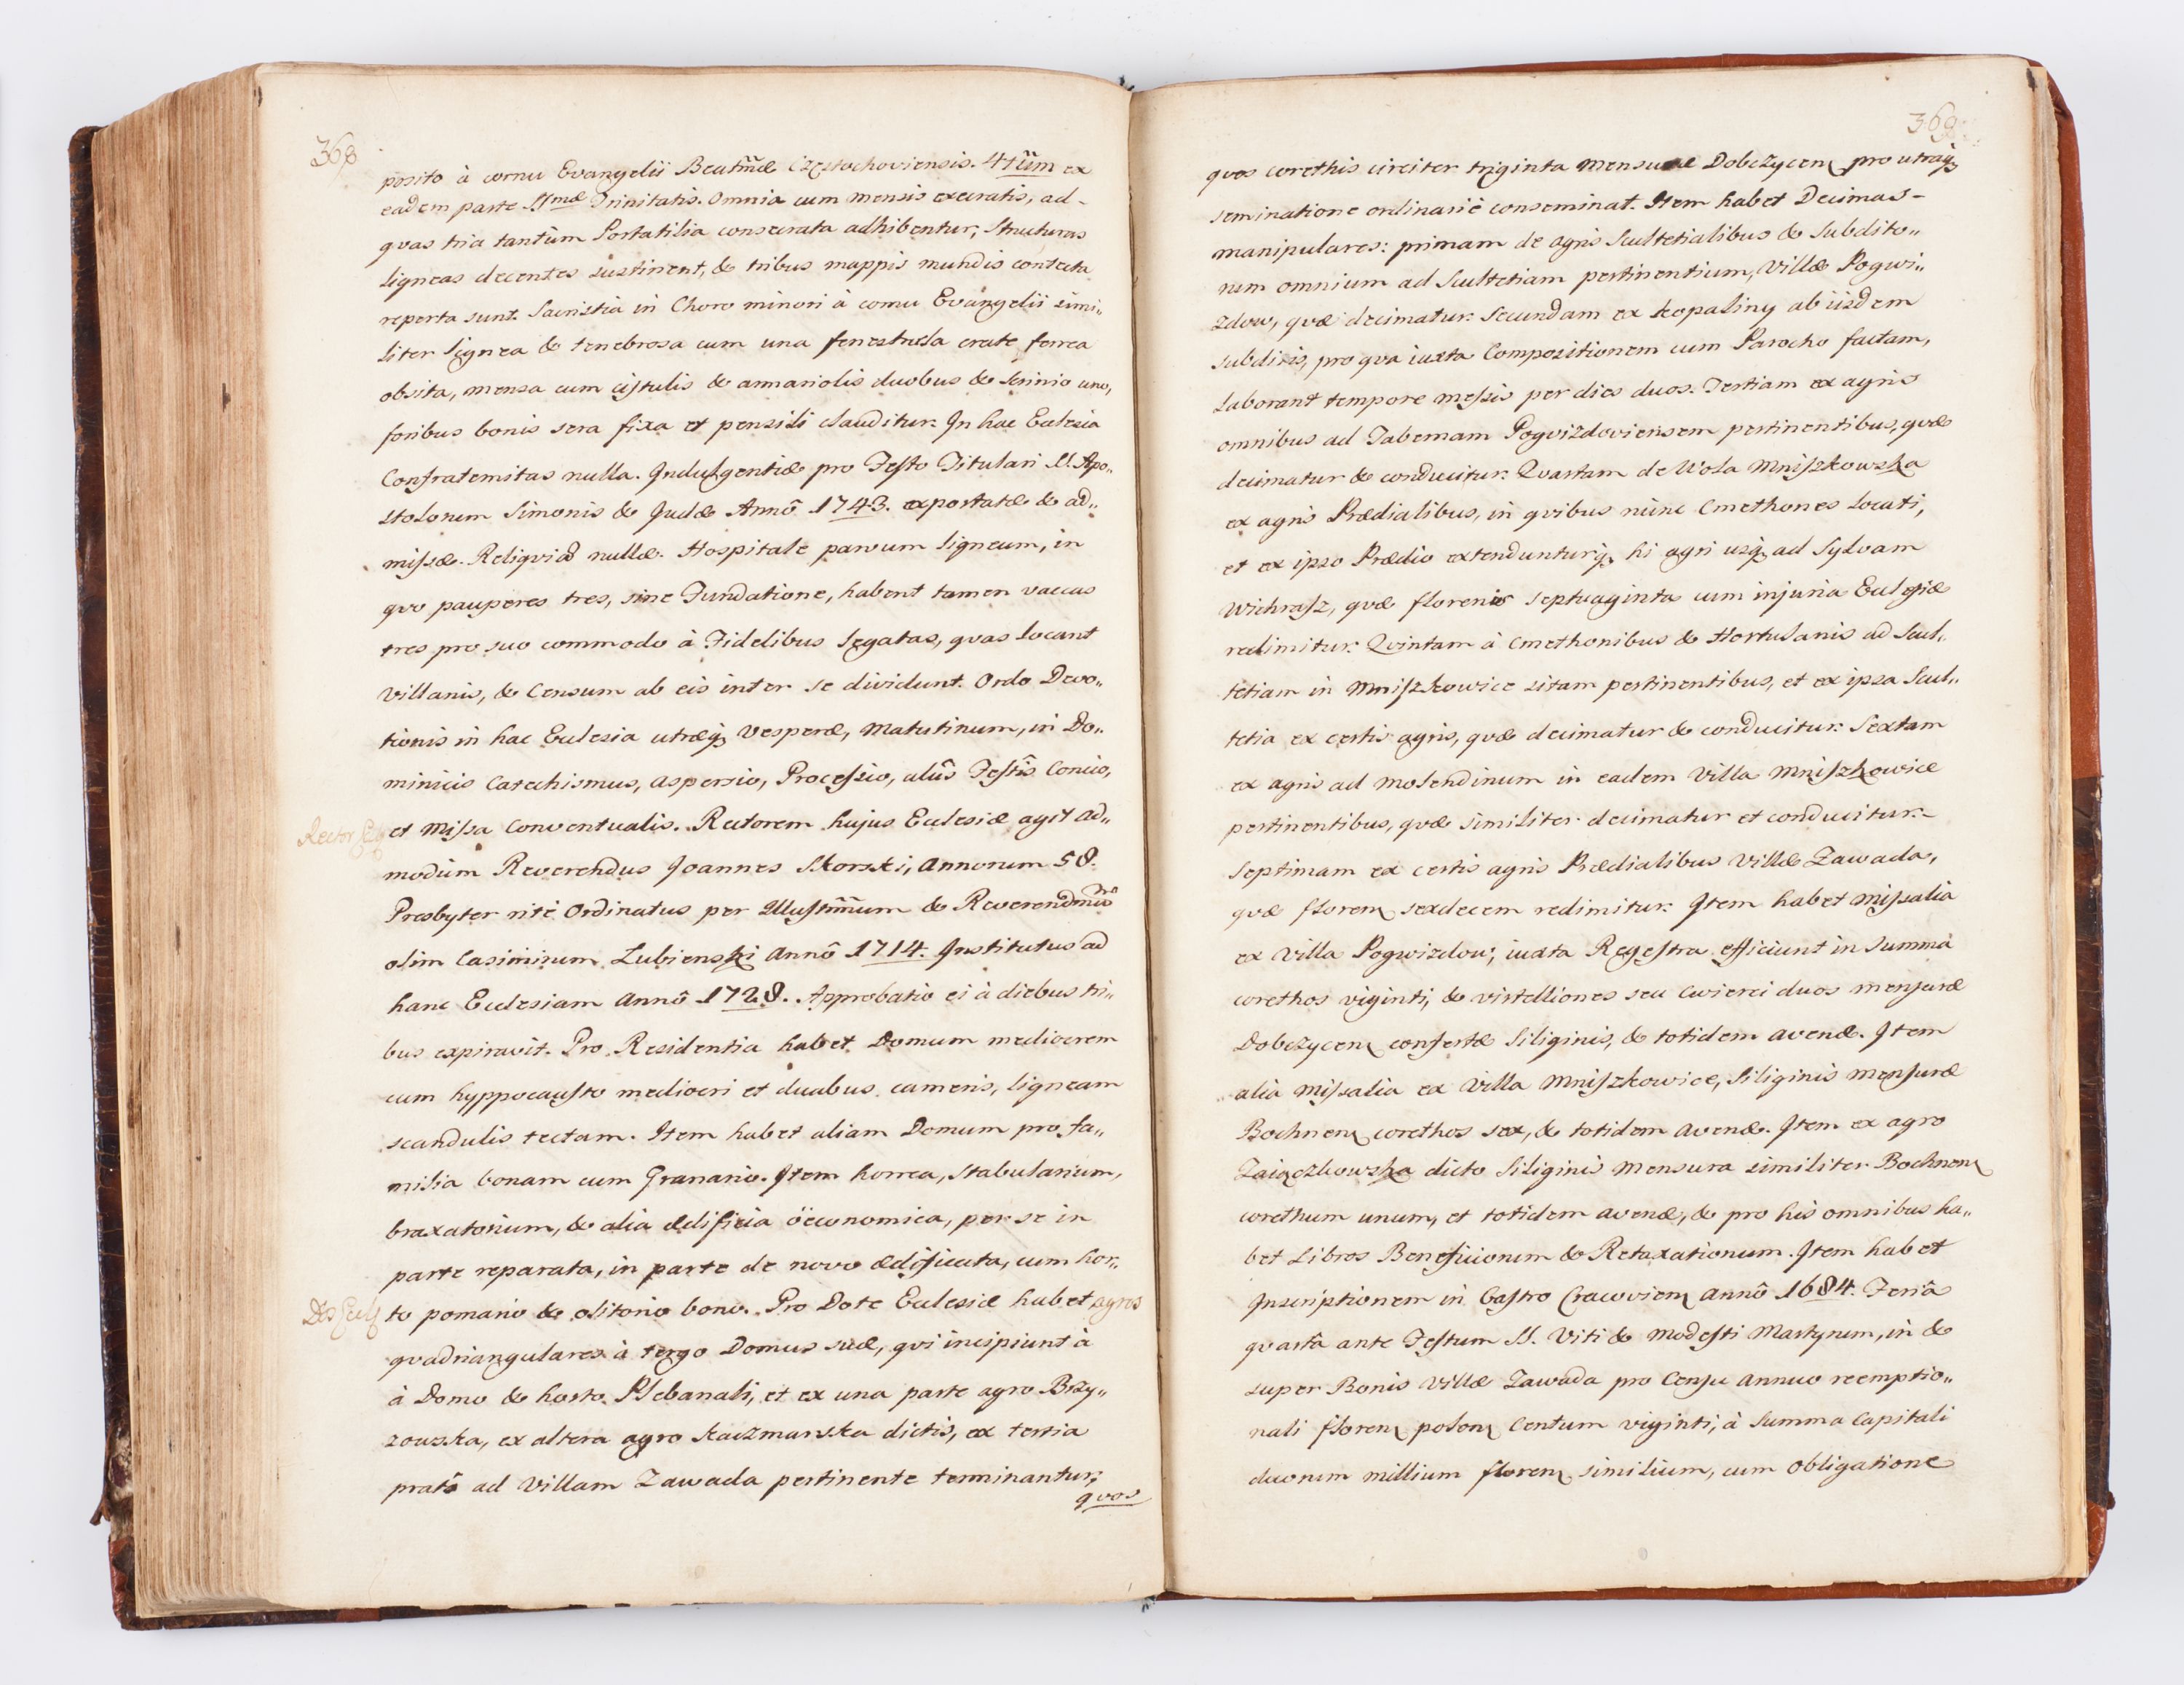 368
posito à cornu Evangelii Beatmæ Częstochoviensis. 4tum ex
eadem parte SSmæ Trinitatis. Omnia cum mensis execratis, ad-
quas tria tantùm Portatilia consecrata adhibentur, Structuras
ligneas decentes sustinent, & tribus mappis mundis contecta
reperta sunt. Sacristia in Choro minori à cornu Evangelii simi„
liter lignea & tenebrosa cum una fenestrela crate ferrea
obsita, mensa cum cistulis & armariolis duobus & scrinio uno,
foribus bonis sera fixa et pensili clauditur. In hac Ecclesia
Confraternitas nulla. Indulgentiæ pro Festo Titulari SS. Apo„
stolorum Simonis & Judæ Annô 1743. exportatæ & ad„
missæ. Reliquiæ nullæ. Hospitale parvum ligneum, in
quo pauperes tres, sine Fundatione, habent tamen vaccas
tres pro suo commodo à Fidelibus legatas, quas locant
villanis, & Censum ab eis inter se dividunt. Ordo Devo„
tionis in hac Ecclesia utræq, Vesperæ, Matutinum, in Do„
minicis Catechismus, aspersio, Processio, aliis Festis Concio,
Rector Ecc
et Missa Conventualis. Rectorem hujus Ecclesiæ agit ad„
modùm Reverendus Joannes Skorski, Annorum 58.
Presbyter ritè Ordinatus per Illustmum & Reverendmum
olim Casimirum Łubienski Annô 1714. Institutus ad
hanc Ecclesiam Annô 1728. Approbatio ei à diebus tri„
bus expiravit. Pro Residentia habet Domum mediocrem
cum hyppocausto mediocri et duabus cameris, ligneam
scandulis tectam. Item habet aliam Domum pro fa„
milia bonam cum Granario. Item horrea, stabularium,
braxatorium, & alia ædificia öeconomica, per se in
parte reparata, in parte de novo ædificata, cum hor„
Dos Eccl
to pomario & olitorio bono. Pro Dote Ecclesiæ habet agros
quadriangulares à tergo Domus suæ, qui incipiunt à
à Domo & horto Plebanali, et ex una parte agro Brzy„
zowska, ex altera agro Kaczmarska dictis, ex tertia
pratô ad Villam Zawada pertinente terminantur;
quos
369
quos corethis circiter triginta mensuræ Dobczycen pro utraq,
seminatione ordinariè conseminat. Item habet Decimas-
manipulares: primam de agris Scultetialibus & subdito„
rum omnium ad Scultetiam pertinentium, Villæ Pogwi„
zdow, quæ decimatur. Secundam ex Kopaliny ab iisdem
subditis, pro qua iuxta Compositionem cum Parocho factam,
laborant tempore messis per dies duos. Tertiam ex agris
omnibus ad Tabernam Pogvizdoviensem pertinentibus, quæ
decimatur & conducitur. Quartam de Wola Mniszkowska
ex agris Prædialibus, in quibus nunc Cmethones locati,
et ex ipso Prædio extendunturq, hi agri usq, ad Sylvam
Wichrasz, quæ florenis septuaginta cum injuria Ecclesiæ
redimitur. Quintam à Cmethonibus & Hortulanis ad Scul„
tetiam in Mniszkowice sitam pertinentibus, et ex ipsa Scul„
tetia ex certis agris, quæ decimatur & conducitur. Sextam
ex agris ad molendinum in eadem Villa Mniszkowice
pertinentibus, quæ similiter decimatur et conducitur.-
Septimam ex certis agris Prædialibus Villæ Zawada,
quæ floren sexdecem redimitur. Item habet missalia
ex Villa Pogwizdow, iuxta Regestra efficiunt in summa
corethos viginti, & virtelliones seu Cwierci duos mensuræ
Dobczycen confertæ Siliginis, & totidem avenæ. Item
alia missalia ex Villa Mniszkowice, Siliginis mensuræ
Bochnen corethos sex, & totidem avenæ. Item ex agro
Zaiączkowska dicto Siliginis mensura similiter Bochnen
corethum unum, et totidem avenæ, & pro his omnibus ha„
bet Libros Beneficiorum & Retaxationum. Item habet
Inscriptionem in Castro Cracovien Annô 1684. Feriâ
quartâ ante Festum SS. Viti & Modesti Martyrum, in &
super Bonis Villæ Zawada pro Censu annuo reemptio„
nali floren polon Centum viginti, à Summa Capitali
duorum millium floren similium, cum obligatione